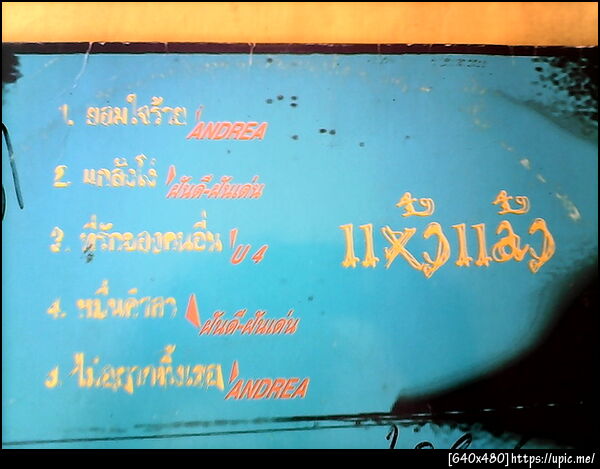 1. ยอมใจร้าย ANDREA
2. แกล้งโง่ ฝันดี-ฝันเด่น
3. ที่รักของคนอื่น U 4
แห้งแล้ง
4. หมื่นศัลลา ฝันดี-ฝันเด่น
5. ไม่อยากทิ้งเธอ ANDREA
[640x480]https://upic.me/